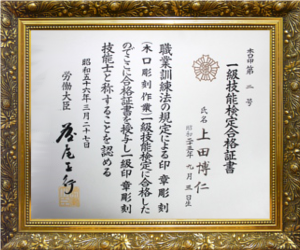 木口印第二号
一級技能検定合格証書
氏名 上田博仁
昭和二十五年九月五日生
職業訓練法の規定による印章彫刻
(木口彫刻作業)一級技能検定に合格した
のでここに合格証書を授与し一級印章彫刻
技能士と称することを認める
昭和五十六年三月二十七日
労働大臣